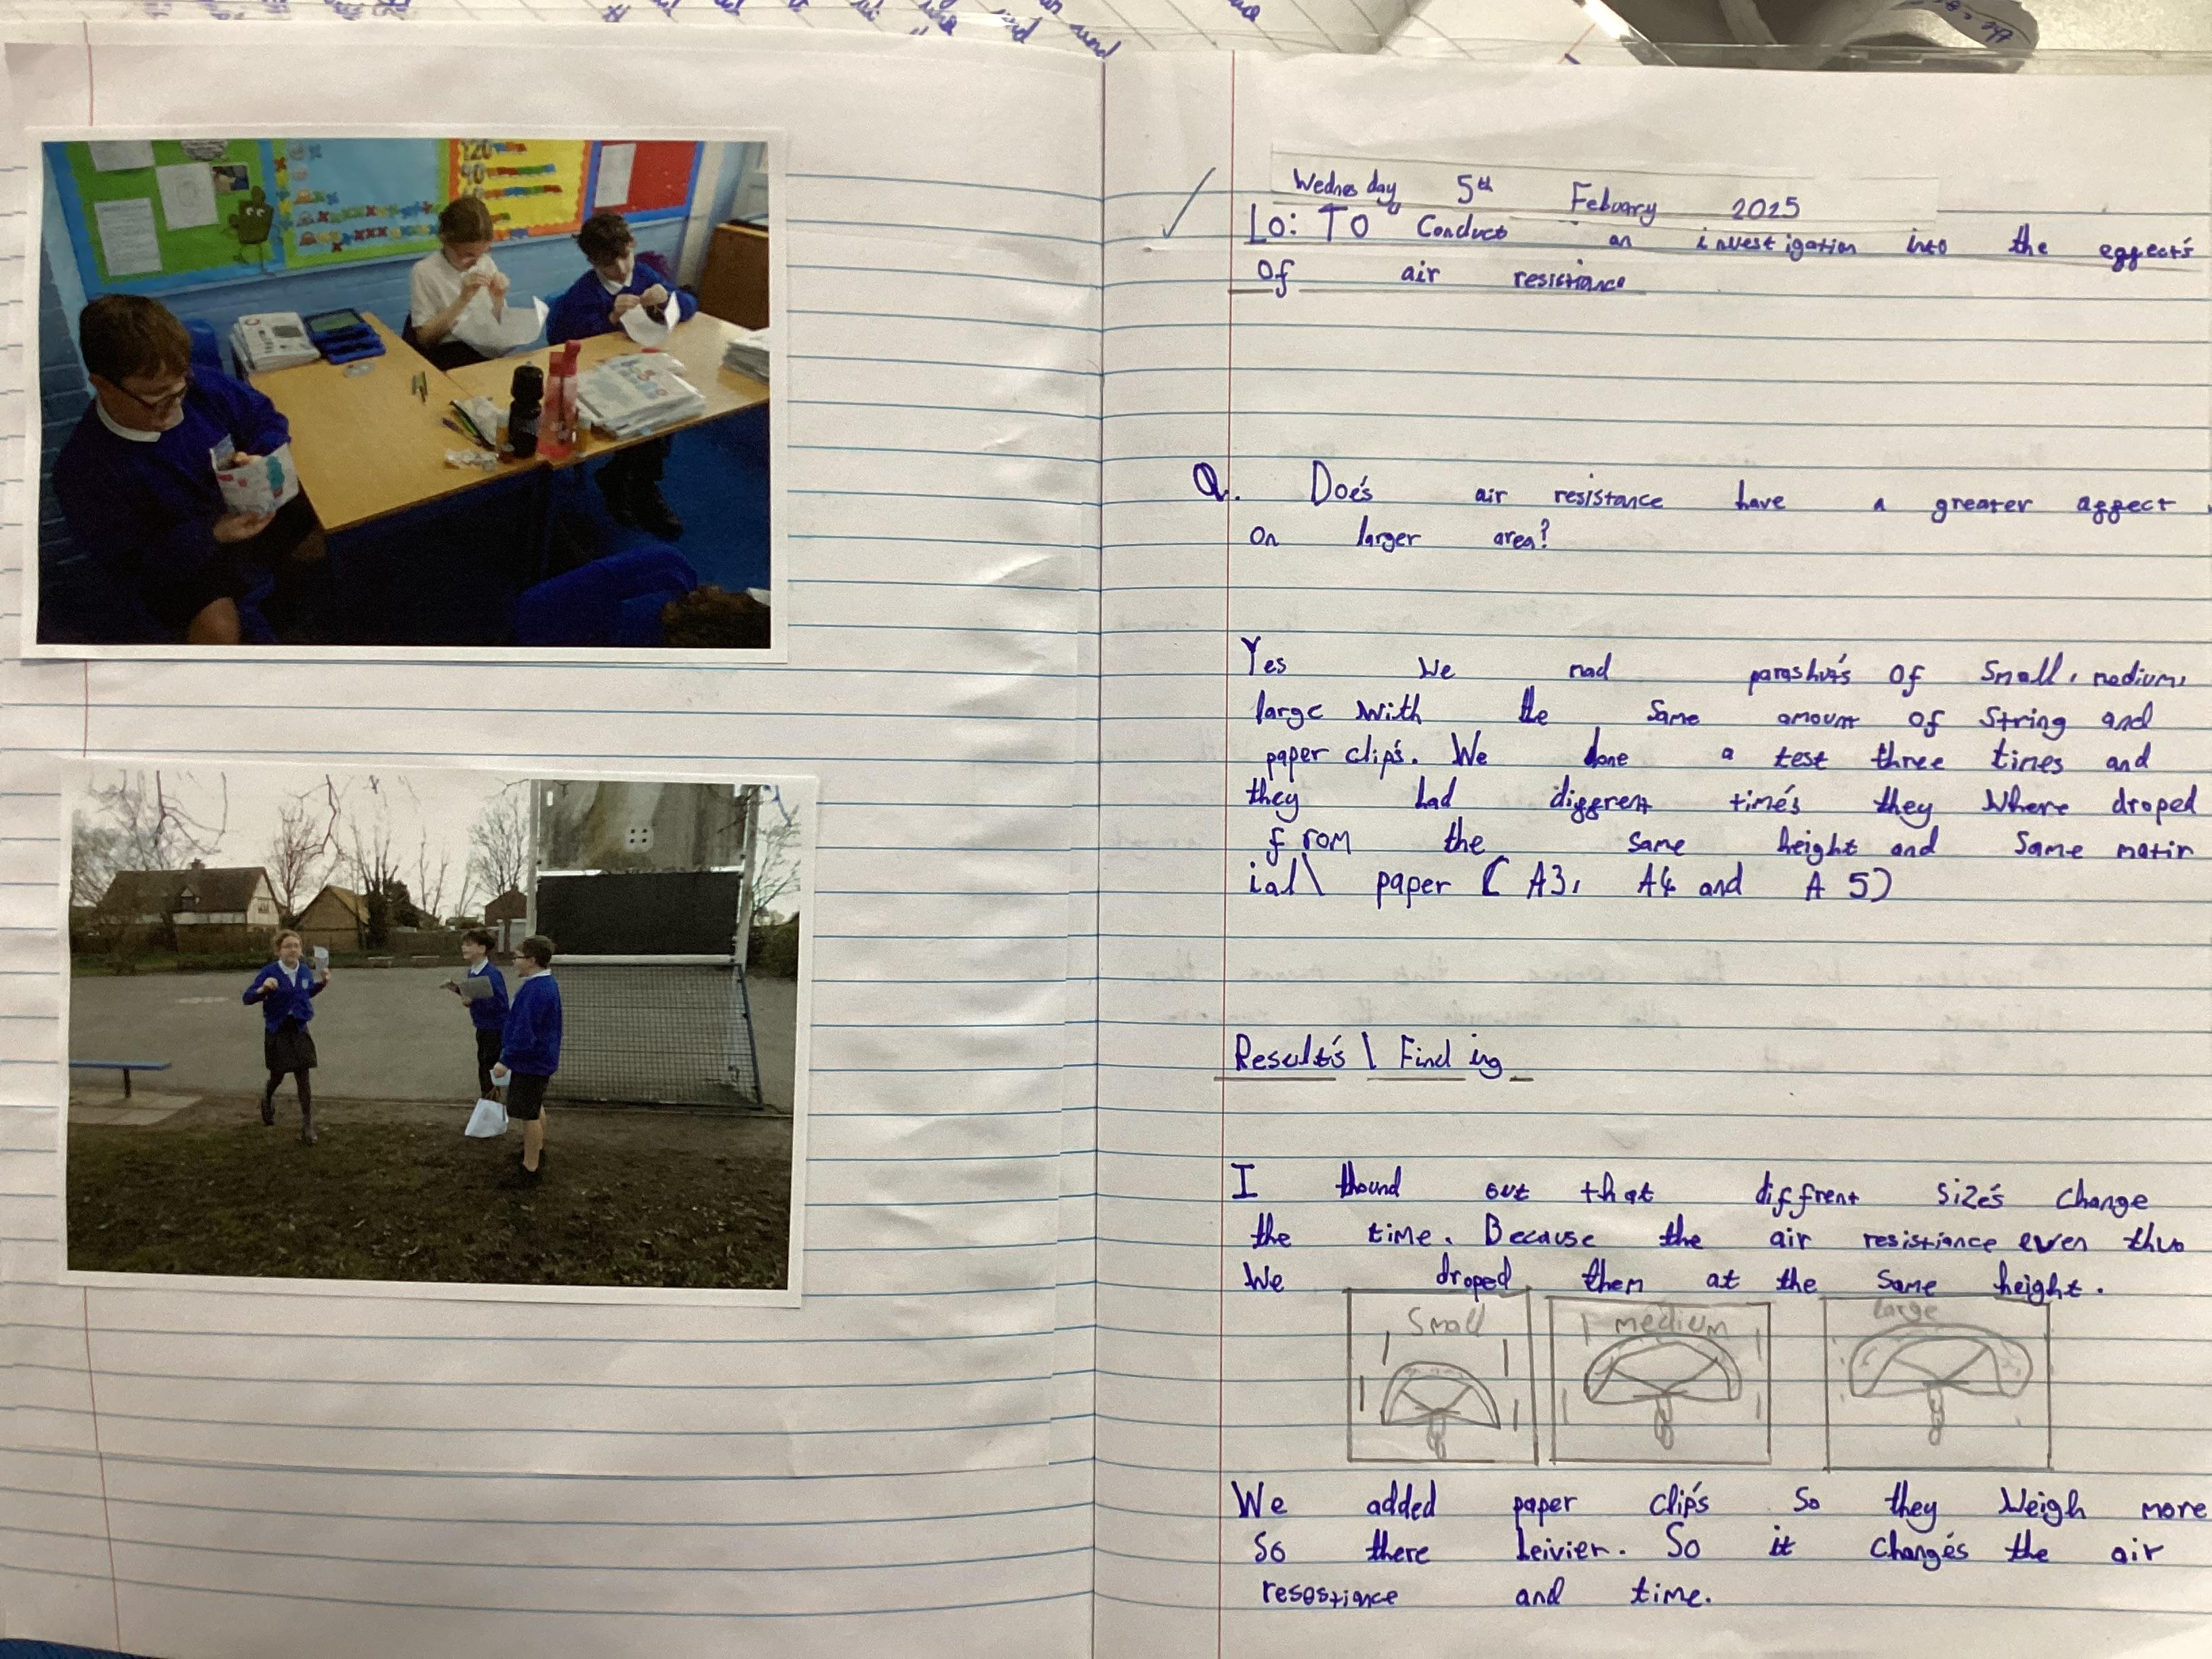 Wednesday 5th Febuary 2025
Lo: To Conduct an investigation into the effect's
of air resistance
Q. Doe's air resistance have a greater affect
on larger area?
Yes we had parashut's of Small, medium,
large with the same amount of String and
paper clip's. We done a test three times and
they had different time's they where droped
from the same height and same matir
ial\ paper (A3, A4 and A5)
Result's \ Finding
I thound out that diffrent size's change
the time. Because the air resistiance even thuo
we droped them at the same height.
Small medium large
We added paper clip's so they weigh more
So there heivier. So it change's the air
resostiance and time.